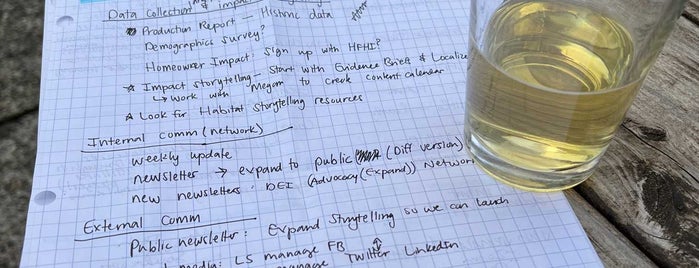 Data Collection & impact
Production Report — Historic data
Demographics survey?
Homeowner Impact: Sign up with HFHI?
☆ Impact storytelling — Start with Evidence Briefs & Localize
↳ Work with Megan to creat content calendar
☆ Look for Habitat Storytelling resources
Internal Comm (network)
weekly update
newsletter → expand to public (Diff version)
new newsletters: DEI (Advocacy (Expand)) Network
External Comm
Public newsletter: Expand Storytelling so we can
media: LS manage FB
manage Twitter LinkedIn